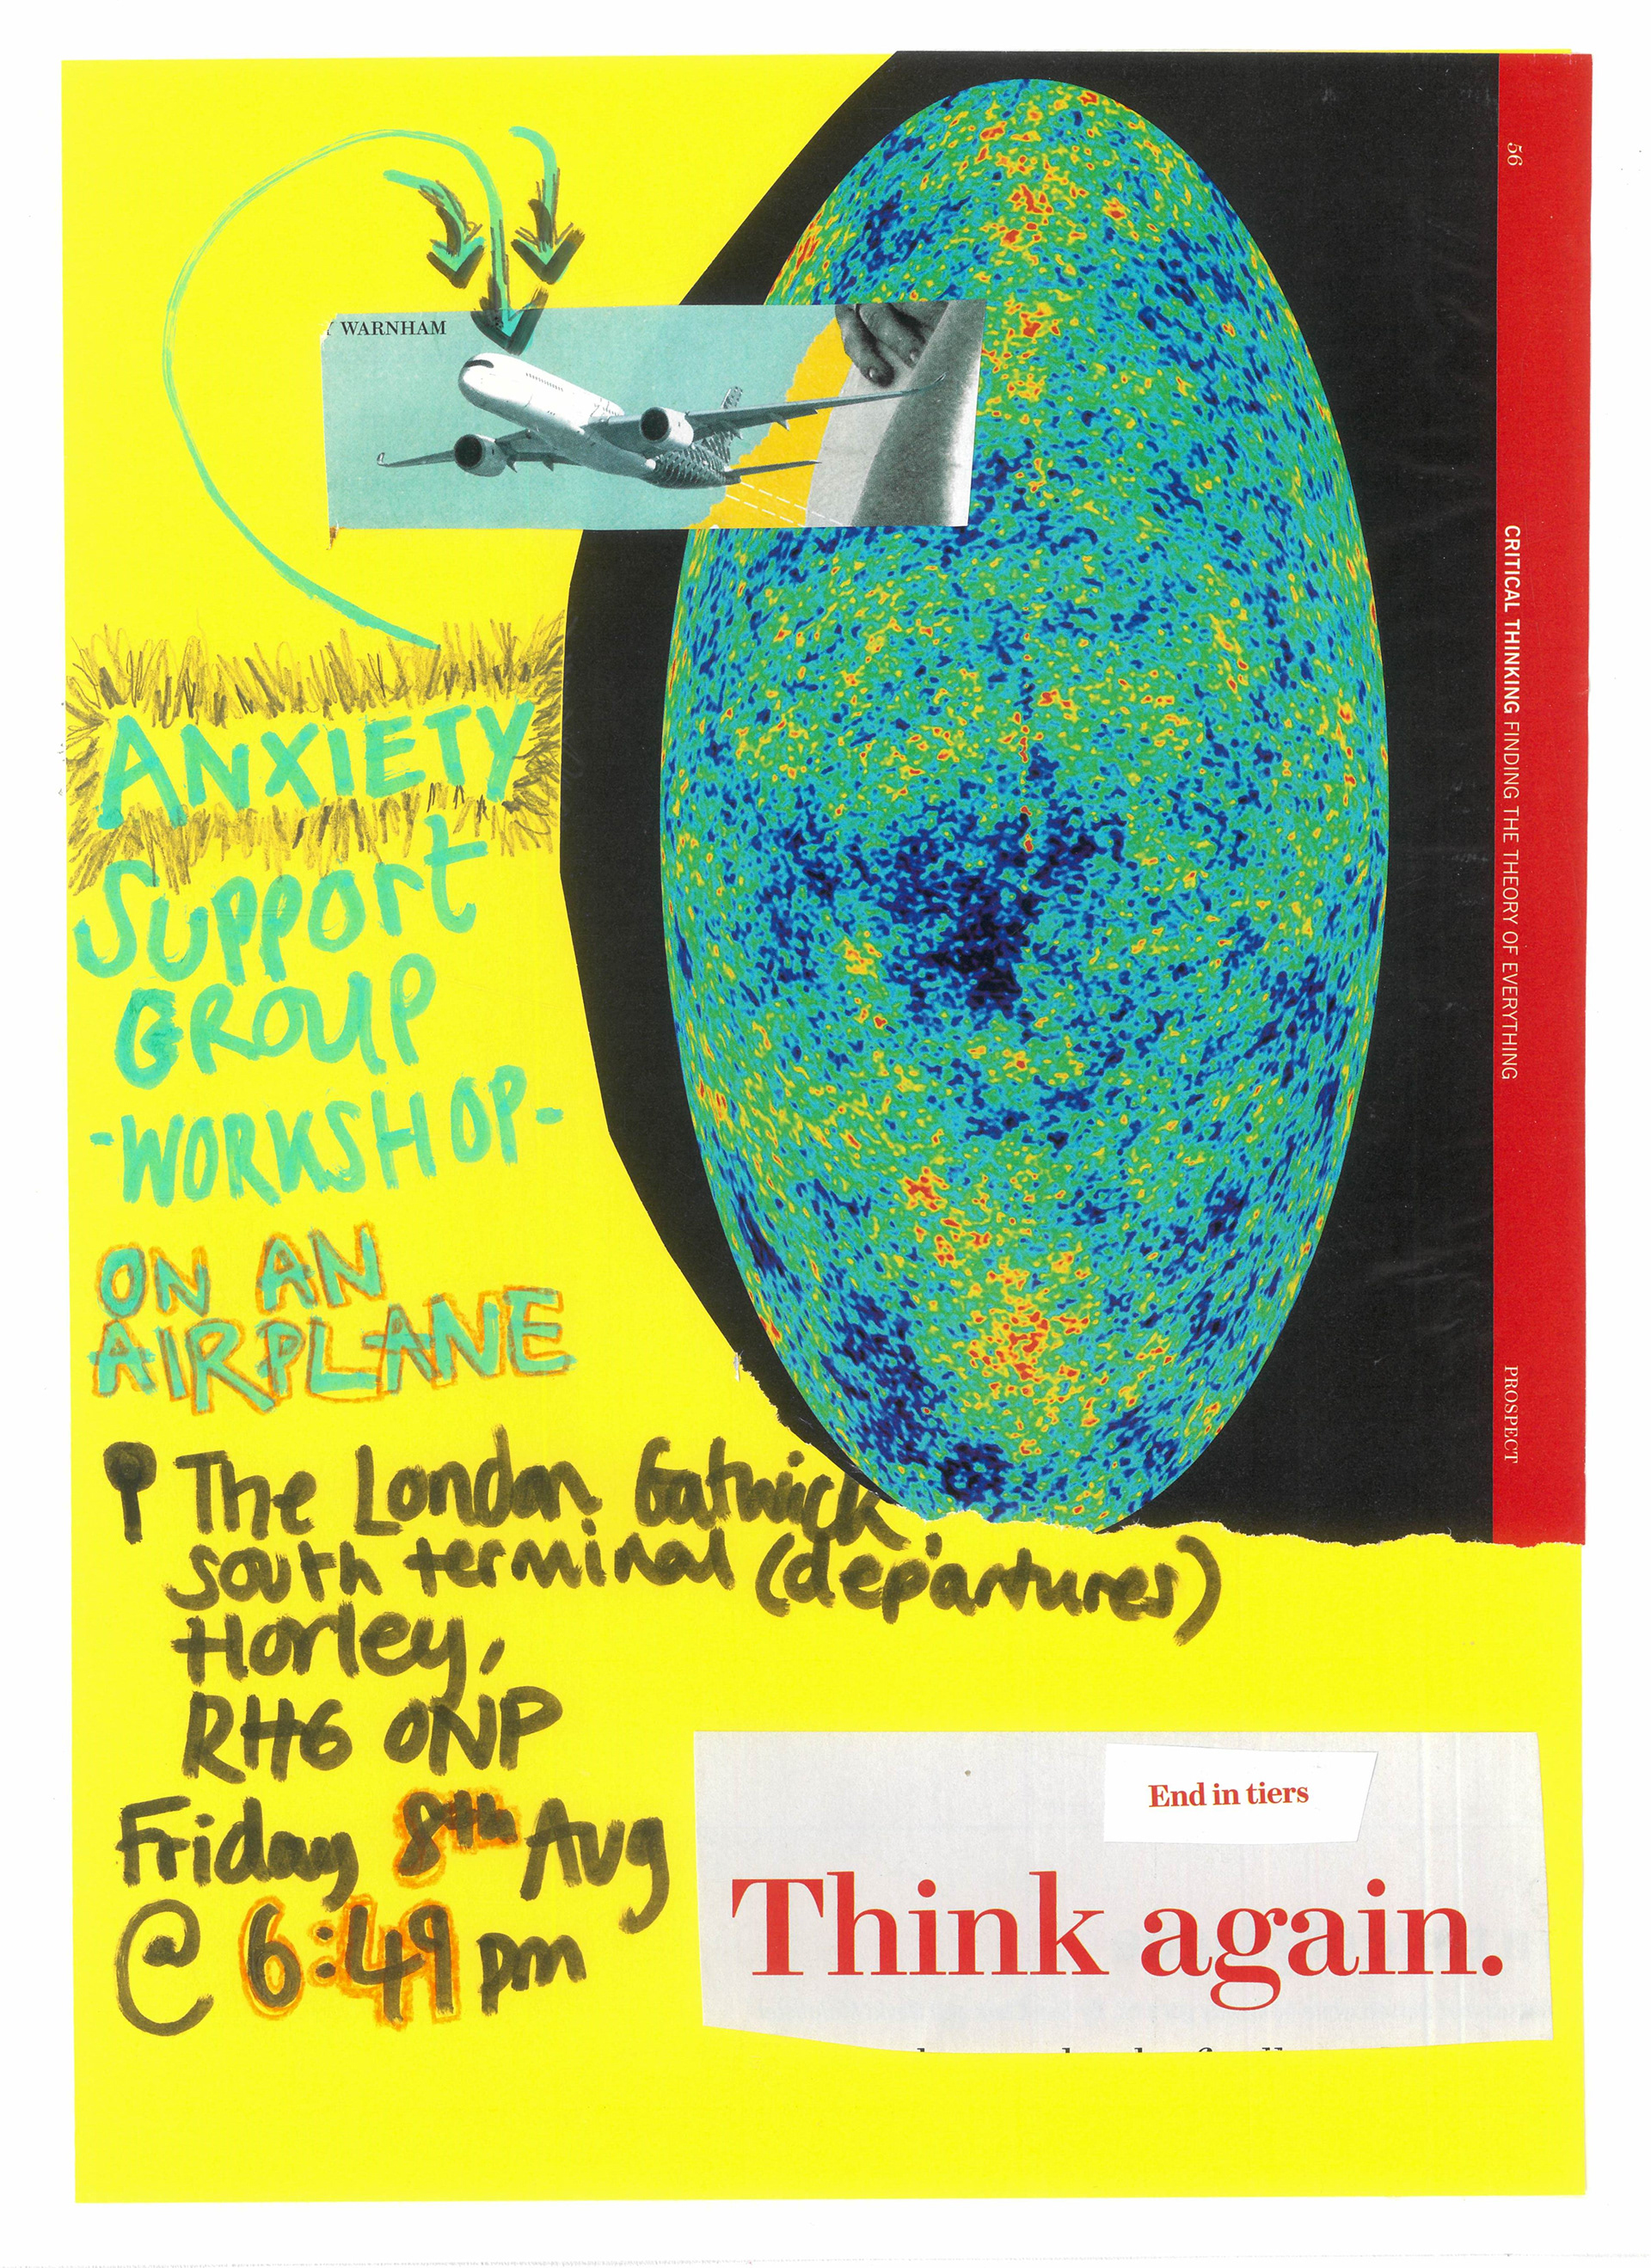 Y WARNHAM
ANXIETY
Support
GROUP
-WORKSHOP-
ON AN
AIRPLANE
The London Gatwick,
south terminal (departures)
Horley,
RH6 0NP
Friday 8th Aug
@ 6:49 pm
56
CRITICAL THINKING FINDING THE THEORY OF EVERYTHING
PROSPECT
End in tiers
Think again.